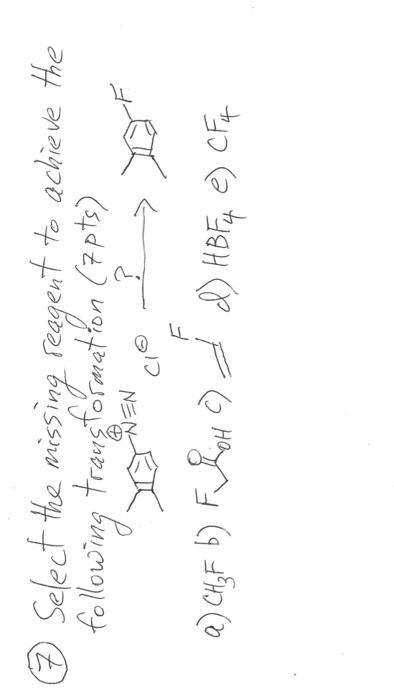 7 Select the missing reagent to achieve the
following transformation (7pts)
⊕N≡N Cl⊖ ? F
a) CH₃F b) F O OH c) F d) HBF₄ e) CF₄